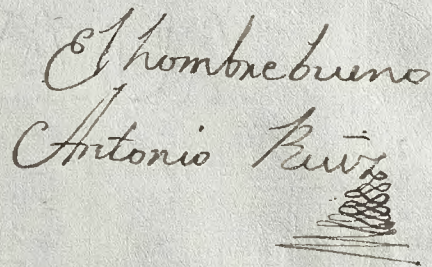 El hombrebueno
Antonio Ruiz